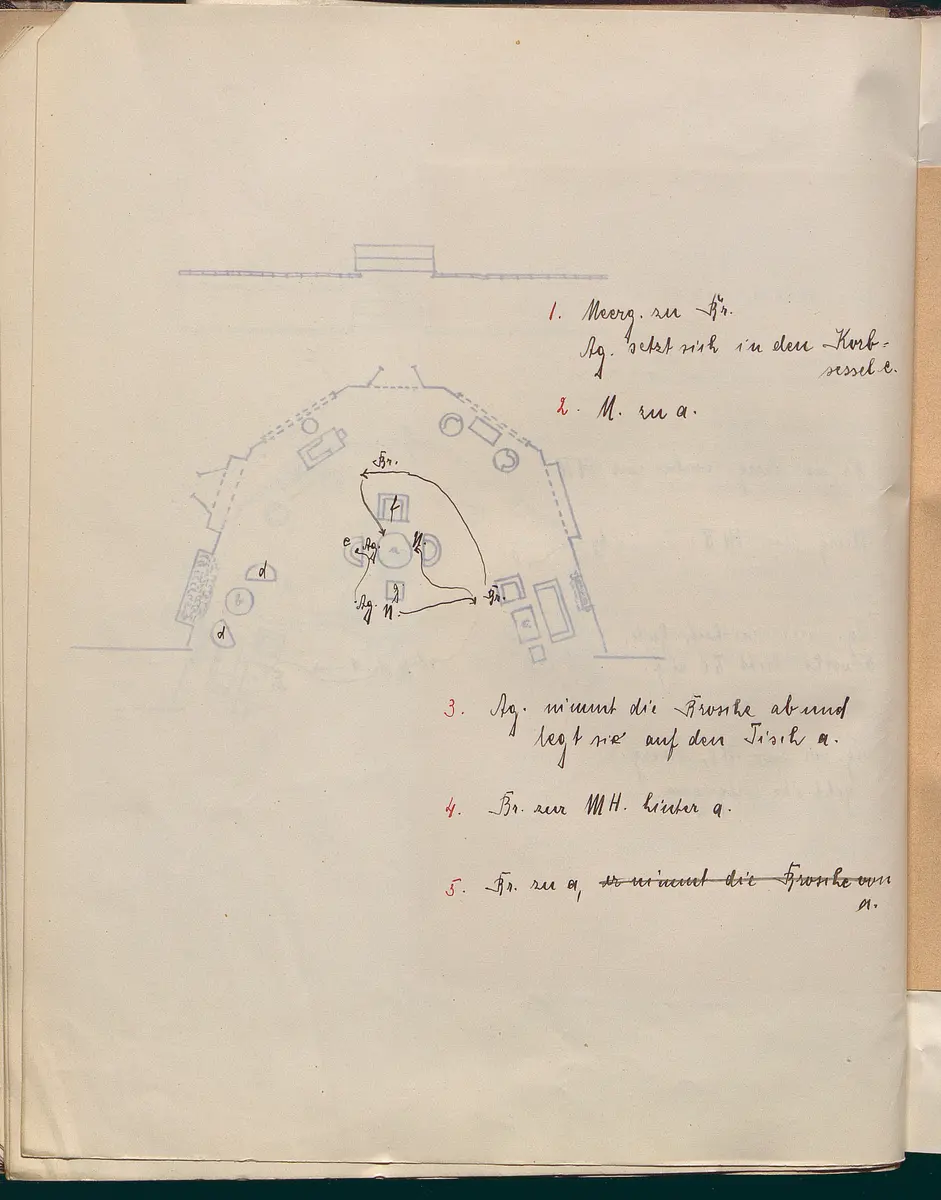 1. Meerg. zu Br.
Ag. setzt sich in den Korb-
sessel e.
2. M. zu a.
Br.
f
e
Ag.
M.
a
d
g
Ag.
M.
Br.
d
3. Ag. nimmt die Brosche ab und
legt sie auf den Tisch a.
4. Br. zur MH. hinter a.
5. Br. zu a, er nimmt die Brosche von
a.